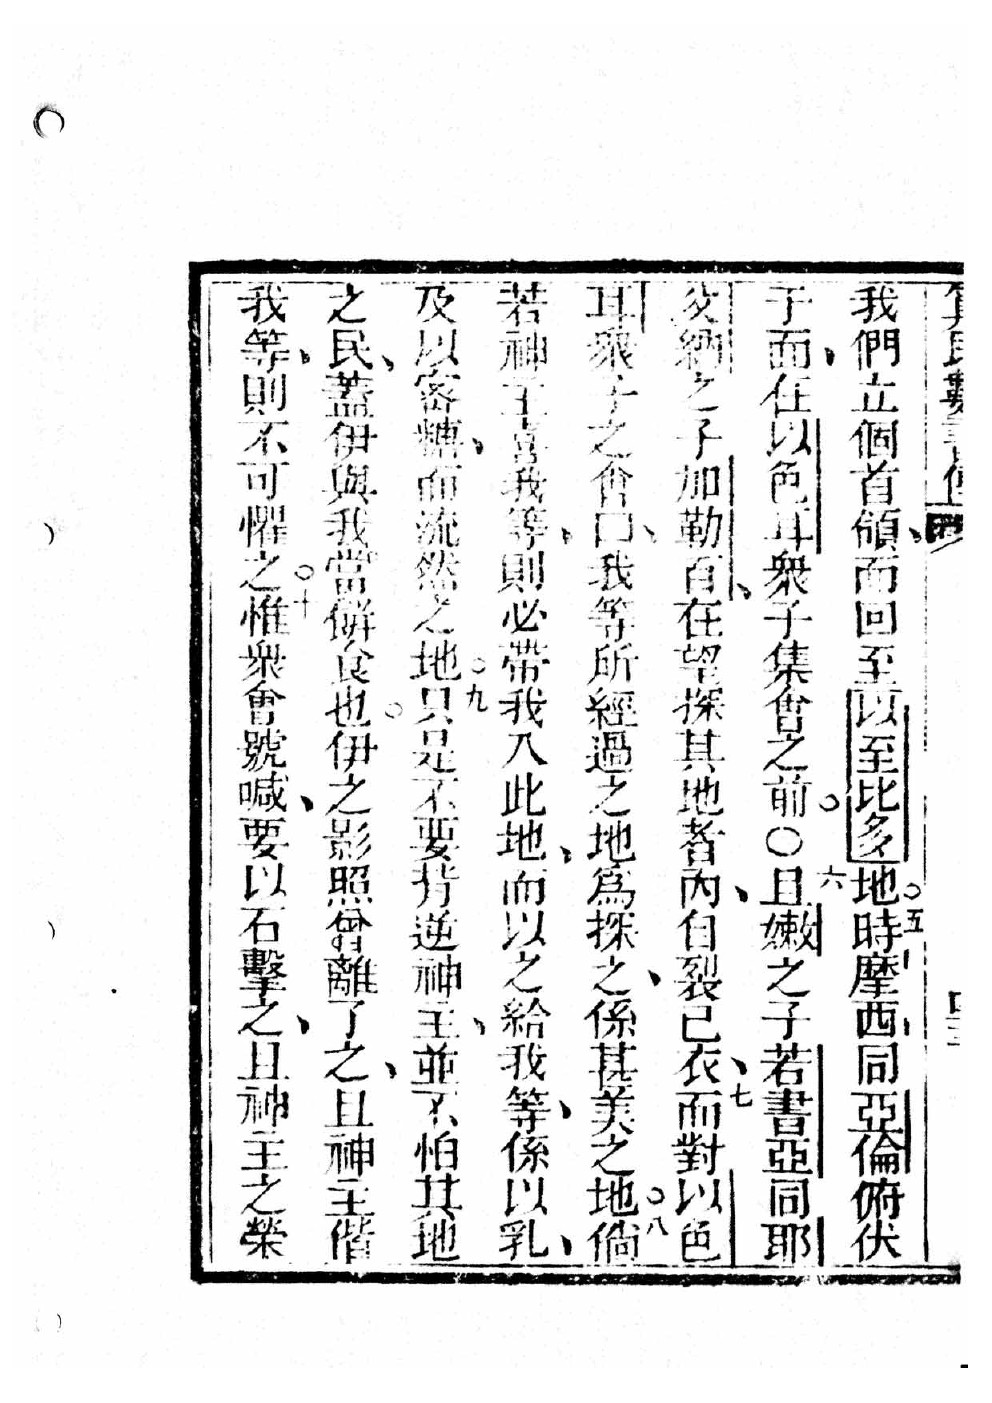 民數
我們立個首領、而回至以至比多地○五時摩西、同亞倫俯伏
子面、在以色耳衆子集會之前。○六且嫩之子若書亞同耶
納之子加勒百、在望探其地者內、自裂己衣、七而對以色
耳衆子之會曰、我等所經過之地爲探之、係甚美之地○八倘
若神主喜我等、則必帶我入此地、而以之給我等、係以乳、
及以密糖、而流然之地○九只是不要背逆神主、並不怕其地
之民、蓋伊與我當餅食也。伊之影照曾離了之、且神主偕
我等、則不可懼之○十惟衆會號喊、要以石擊之、且神主之榮